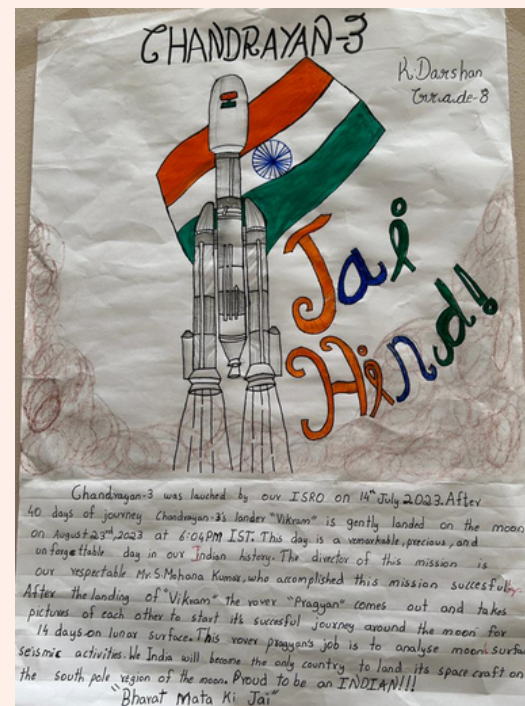 CHANDRAYAN-3
K.Darshan
Grade-8
Jai
Hind!
Chandrayan-3 was lauched by our ISRO on 14th July 2023. After
40 days of journey Chandrayan-3's lander "Vikram" is gently landed on the moon
on August 23rd, 2023 at 6:04PM IST. This day is a remarkable, precious, and
unforgettable day in our Indian history. The director of this mission is
our respectable Mr. S. Mohana Kumar, who accomplished this mission succesfully.
After the landing of "Vikram" the rover "Pragyan" comes out and takes
pictures of each other to start it's succesful journey around the moon for
14 days on lunar surface. This rover pragyan's job is to analyse moon's surfac
seismic activities. We India will become the only country to land its space craft on
the south pole region of the moon. Proud to be an INDIAN!!!
"Bharat Mata Ki Jai"